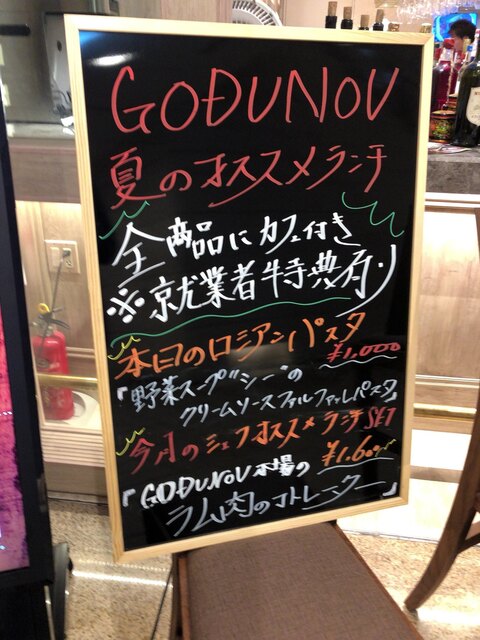 GODUNOV
夏のオススメランチ
全商品にカフェ付き
※就業者特典有り
本日のロシアンパスタ
¥1,000
「野菜スープ"シー"の
クリームソースファルファッレパスタ」
今月のシェフオススメランチSET
¥1,600
「GODUNOV市場の
ラム肉のコトレーター」